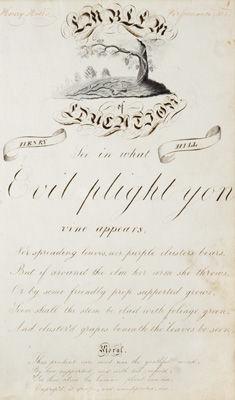 Henry Hill's
EMBLEM
of
EDUCATION
HENRY
HILL
See in what
Evil plight yon
vine appears.
Nor spreading leaves, nor purple clusters bears.
But if around the elm her arms she throws,
Or by some friendly prop supported grows,
Soon shall the stem be clad with foliage green,
And cluster'd grapes beneath the leaves be seen.
Moral.
This prudent care must rear the youthful mind,